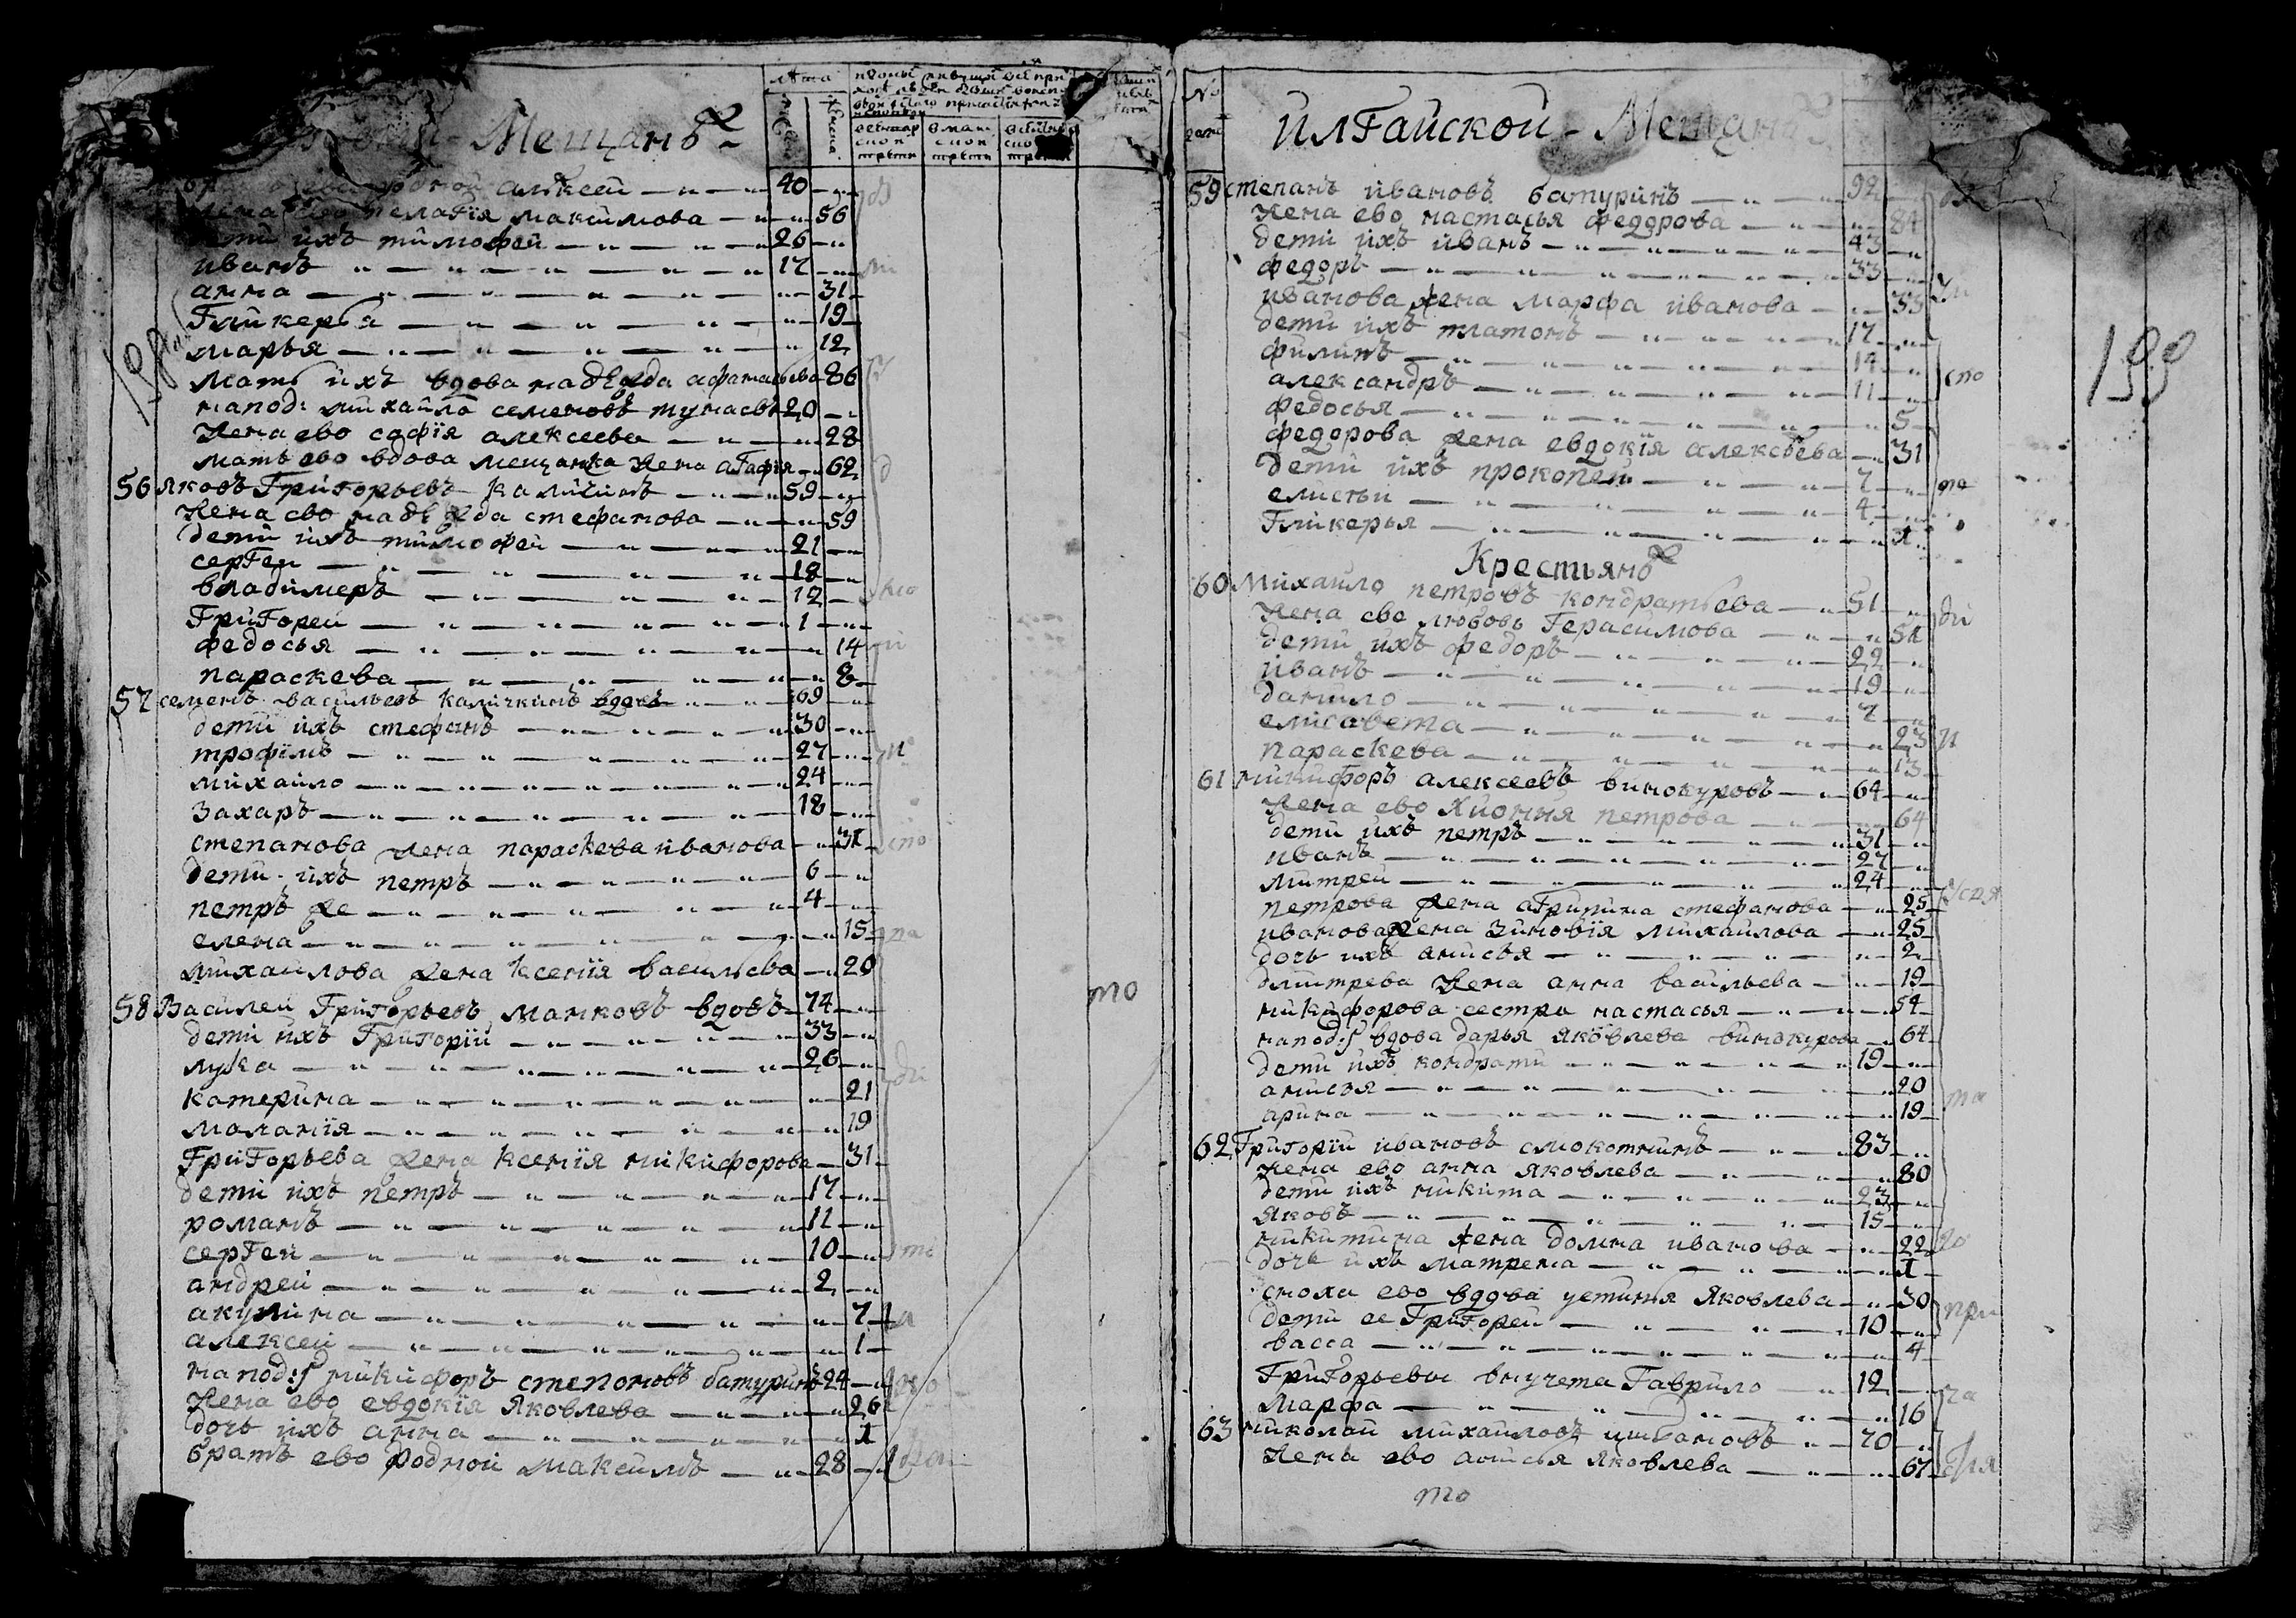 Мещанъ
родной алѣксей 40
жена ево пелагїя максимова 56
дети ихъ тимофей 26
иванъ 17
анна 31
гликерья 19
марья 12
мать ихъ вдова надѣжда афанасьева 86
на под: михайло семеновъ тунаевъ 20
жена ево софїя алексеева 28
мать ево вдова мещанка жена агафїя 62
56 яковъ григорьевъ 59
жена ево надѣжда стефанова 59
дети ихъ тимофей 21
сергеи 18
владимеръ 12
григореи 1
федосья 14
параскева 8
57 семенъ васильевъ каличкинъ вдовъ 69
дети ихъ стефанъ 30
трофїмъ 27
михайло 24
захаръ 18
степанова жена параскева иванова 31
дети ихъ петръ 6
петръ же 4
елена 15
михаилова жена ксенїя васильева 20
58 Василеи григорьевъ манковъ вдовъ 74
дети ихъ григорїй 33
лука 26
катерина 21
маланїя 19
григорьева жена ксенїя никифорова 31
дети ихъ петръ 17
романъ 11
сергеи 10
андрей 2
акулина 7
алексеи 1
на под: никифоръ степановъ батуринъ 24
жена ево евдокїя яковлева 26
дочь ихъ анна 1
братъ ево родной максимъ 28
то
илгайской Мещанъ
199
59 степанъ ивановъ батуринъ 92
жена ево настасья федорова 84
дети ихъ иванъ 43
федоръ 33
иванова жена марфа иванова 33
дети ихъ платонъ 17
филипъ 14
александръ 11
федосья 5
федорова жена евдокїя алексѣева 31
дети ихъ прокопеи 7
елисеи 4
гликерья 1
Крестьянъ
60 Михаило петровъ кондратьева 51
жена ево любовь герасимова 51
дети ихъ федоръ 22
иванъ 19
данило 7
елисавета 23
параскева 13
61 никифоръ алексеевъ винокуровъ 64
жена ево хионья петрова 64
дети ихъ петръ 31
иванъ 27
митреи 24
петрова жена агрипина стефанова 25
иванова жена зиновїя михаилова 25
дочь ихъ анисья 2
дмитрева жена анна васильева 19
никифорова сестра настасья 54
на под: вдова дарья яковлева винокурова 64
дети ихъ кондрати 19
анисья 20
арина 19
62 григорїи ивановъ смокотнинъ 83
жена ево анна яковлева 80
дети ихъ никита 23
яковъ 15
никитина жена домна иванова 22
дочь ихъ матрена 1
сноха ево вдова устинья яковлева 30
дети ее григореи 10
васса 4
григорьевы внучета гаврило 12
марфа 16
63 николаи михаиловъ 70
жена ево анисья яковлева 67
то